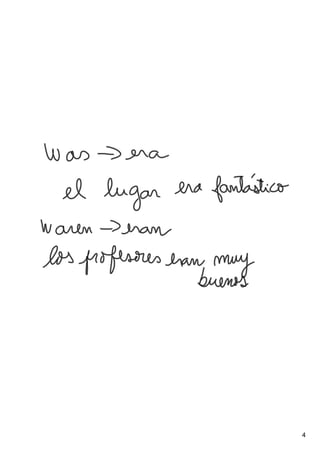 Was → era
el lugar era fantástico
Waren → eran
los profesores eran muy
buenos
4